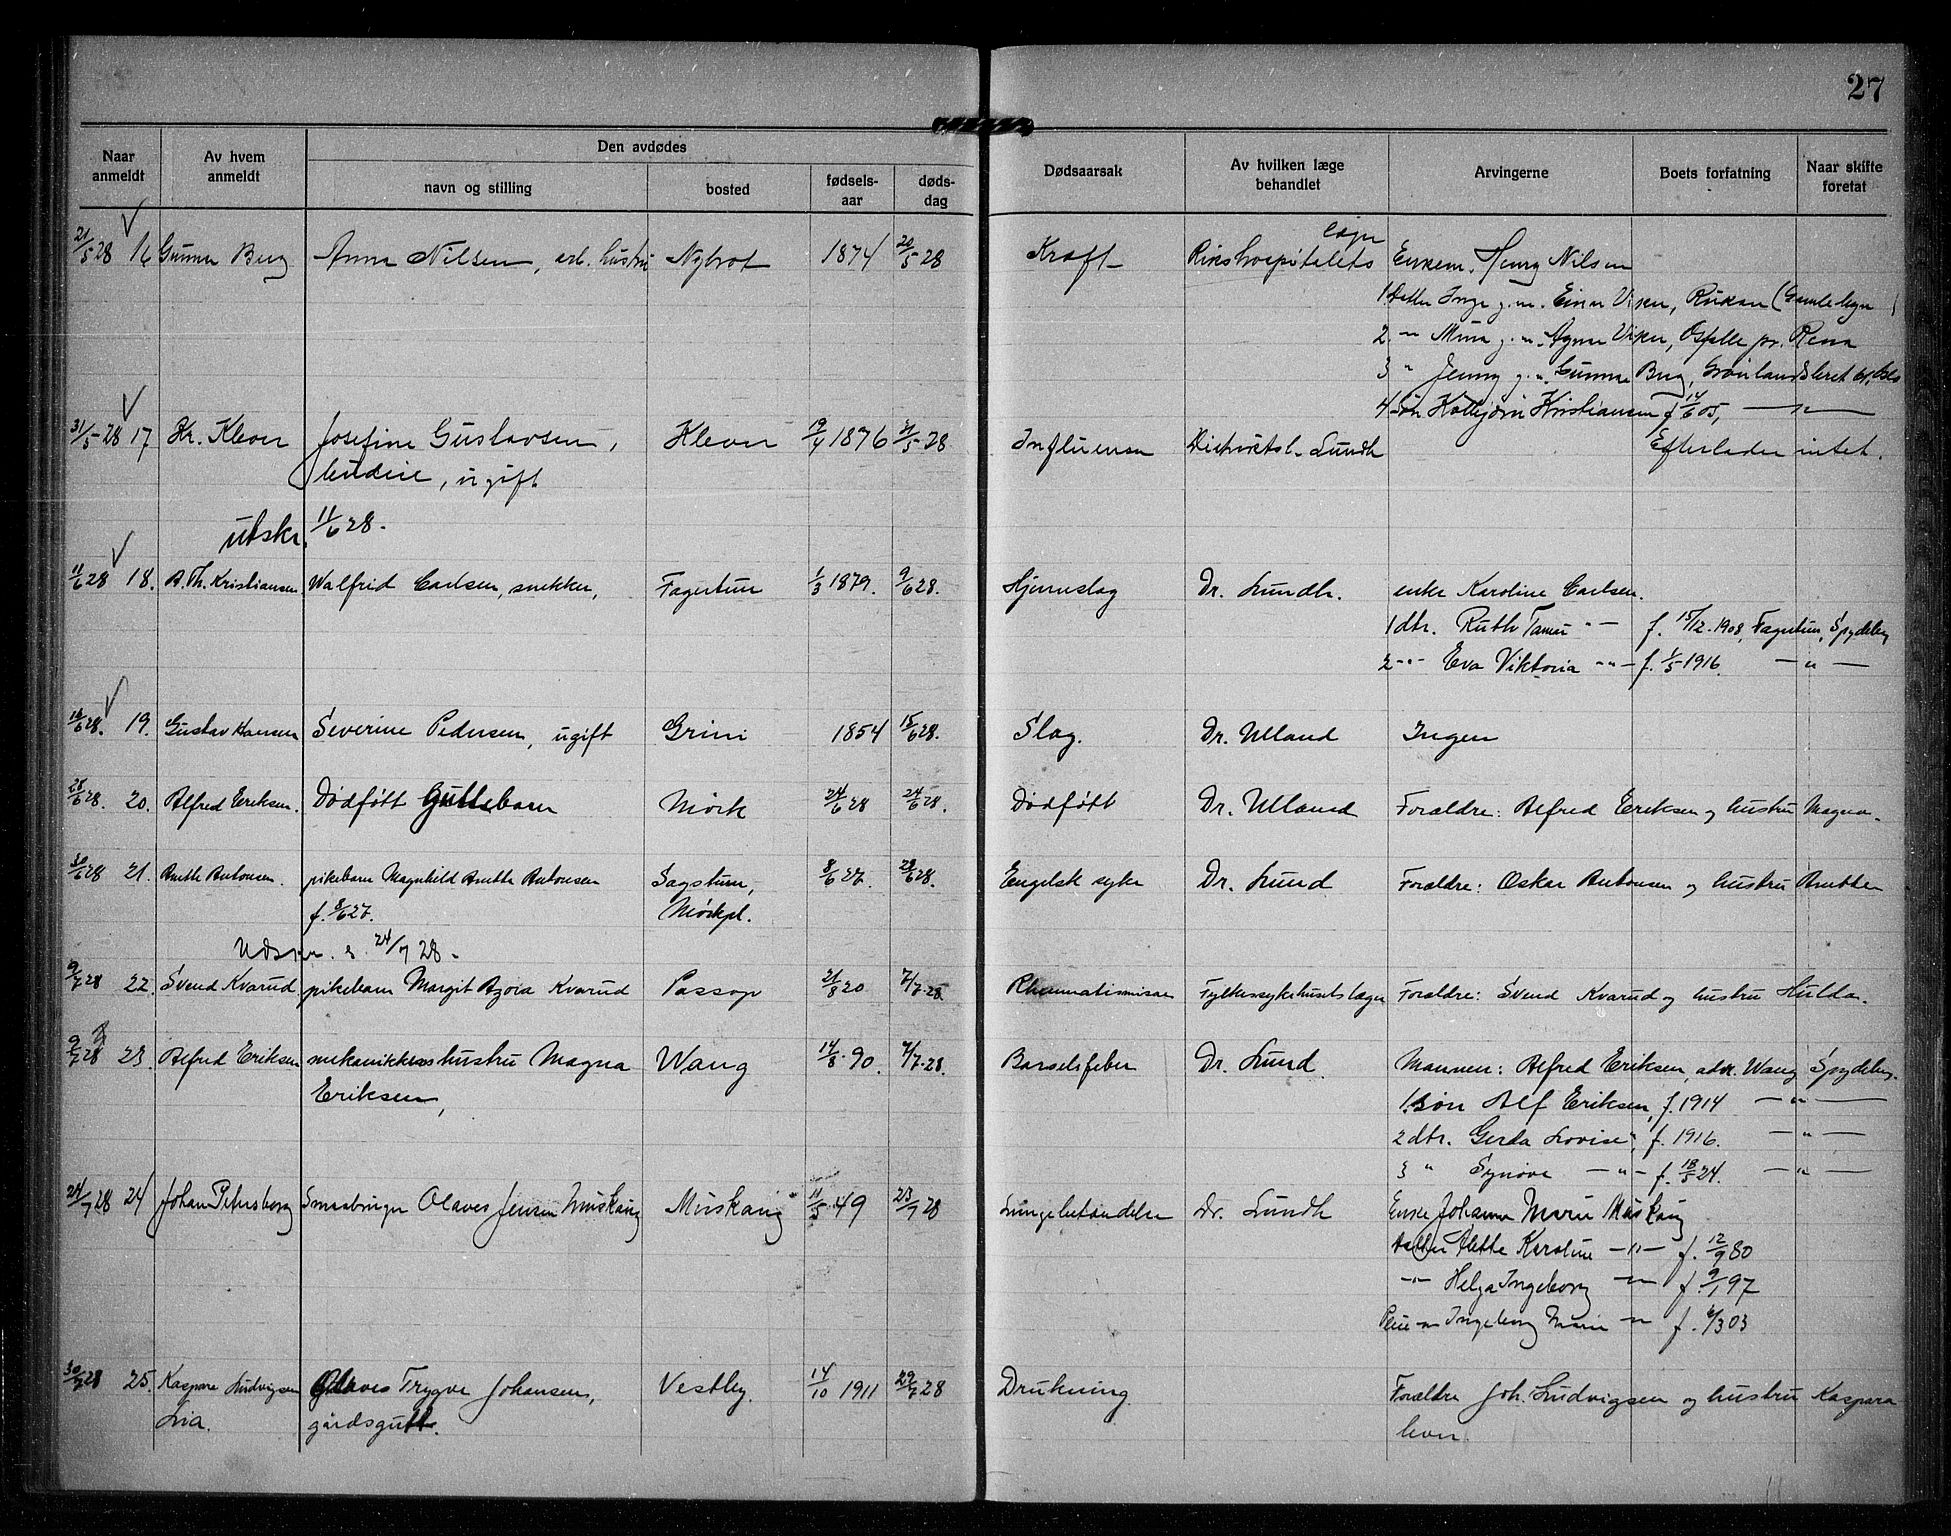 27
Naar anmeldt
Av hvem anmeldt
Den avdødes
navn og stilling
bosted
fødsels-aar
døds-dag
Dødsaarsak
Av hvilken læge behandlet
Arvingerne
Boets forfatning
Naar skifte foretat
21/5 28 16 Gunnar Berg Anna Nilsen, arb. hustru Nybrot 1874 20/5 28 Kræft Rikshospitalets læge Enkem. Henry Nilsen
1. Datter Inga g.m. Einar Viker, Rukan (Gamlebyen)
2 -"- Mina g.m. Agnar Viker, Osfalle pr. Rena
3 " Jenny g.m. Gunnar Berg, Grønlandsleret 61, Oslo
4 Søn Kristiansen f 14/6 05, —"—
31/5-28 17 Kr. Klevn Josefine Gustavsen, Klevn 19/4 1876 31/5-28 Influensa Distriktsl. Lundh Efterlader intet.
budeie, ugift
utskr. 11/6 28.
11/6 28 18. A. Th. Kristiansen Walfrid Carlsen, snekker, Fagertun 1/3 1879. 9/6 28. Hjerneslag Dr. Lundh. enke Karoline Carlsen.
1 dtr. Ruth -"- f. 15/12-1908, Fagertun, Spydeberg
2 -"- Eva Viktoria -"- f. 1/5 1916. —"—
18/6 28. 19. Gustav Hansen Severine Pedersen, ugift Grini 1854 15/6 28. Slag. Dr. Ulland Ingen
28/6 28. 20. Alfred Eriksen. Dødføtt Guttebarn Mörk 24/6 28 24/6 28. Dødføtt Dr. Ulland Forældre: Alfred Eriksen og hustru Magna.
30/6 28 21. Anette Antonsen. pikebarn Magnhild Anette Antonsen Sagstuen, 8/6 27. 28/6 28. Engelsk syke Dr. Lund Forældre: Oskar Antonsen og hustru Anette
f. 8/6 27. Mörkpl.
24/7 28.
9/7 28 22. Svend Kvarud pikebarn Margit Azora Kvarud Passop 21/8 20 7/7-28. Rheumatismisme Fylkessykehusets læger Forældre: Svend Kvarud og hustru Hulda.
9/7 28 23. Alfred Eriksen mekanikkershustru Magna Wang 14/8-90. 7/7-28. Barselsfeber Dr. Lund. Mannen: Alfred Eriksen, adr. Wang Spydeberg.
Eriksen, 1. søn Alf Eriksen, f. 1914 —"—
2 dtr. Gerda Lovise " f. 1916. —"—
3 " Synøve —"— f. 18/5 24. —"—
24/7 28 24 Johan Petersborg Smaabruger Olaves Jensen Muskaug Muskaug 11/5 49 23/7 28 Lungebetændelse Dr. Lundh Enke Johanne Marie Muskaug
datter Alette Karoline —"— f. 12/9 80
-"- Helga Ingeborg —"— f. 9/1 97
Pleie -"- Ingeborg Marie -"- f. 6/3 03
30/7 28 25. Kaspara Ludvigsen Olaves Trygve Johansen, Vestby. 14/10 1911 29/7 28 Drukning. Forældre Joh. Ludvigsen og hustru Kaspara
Lia. gårdsgutt. lever.